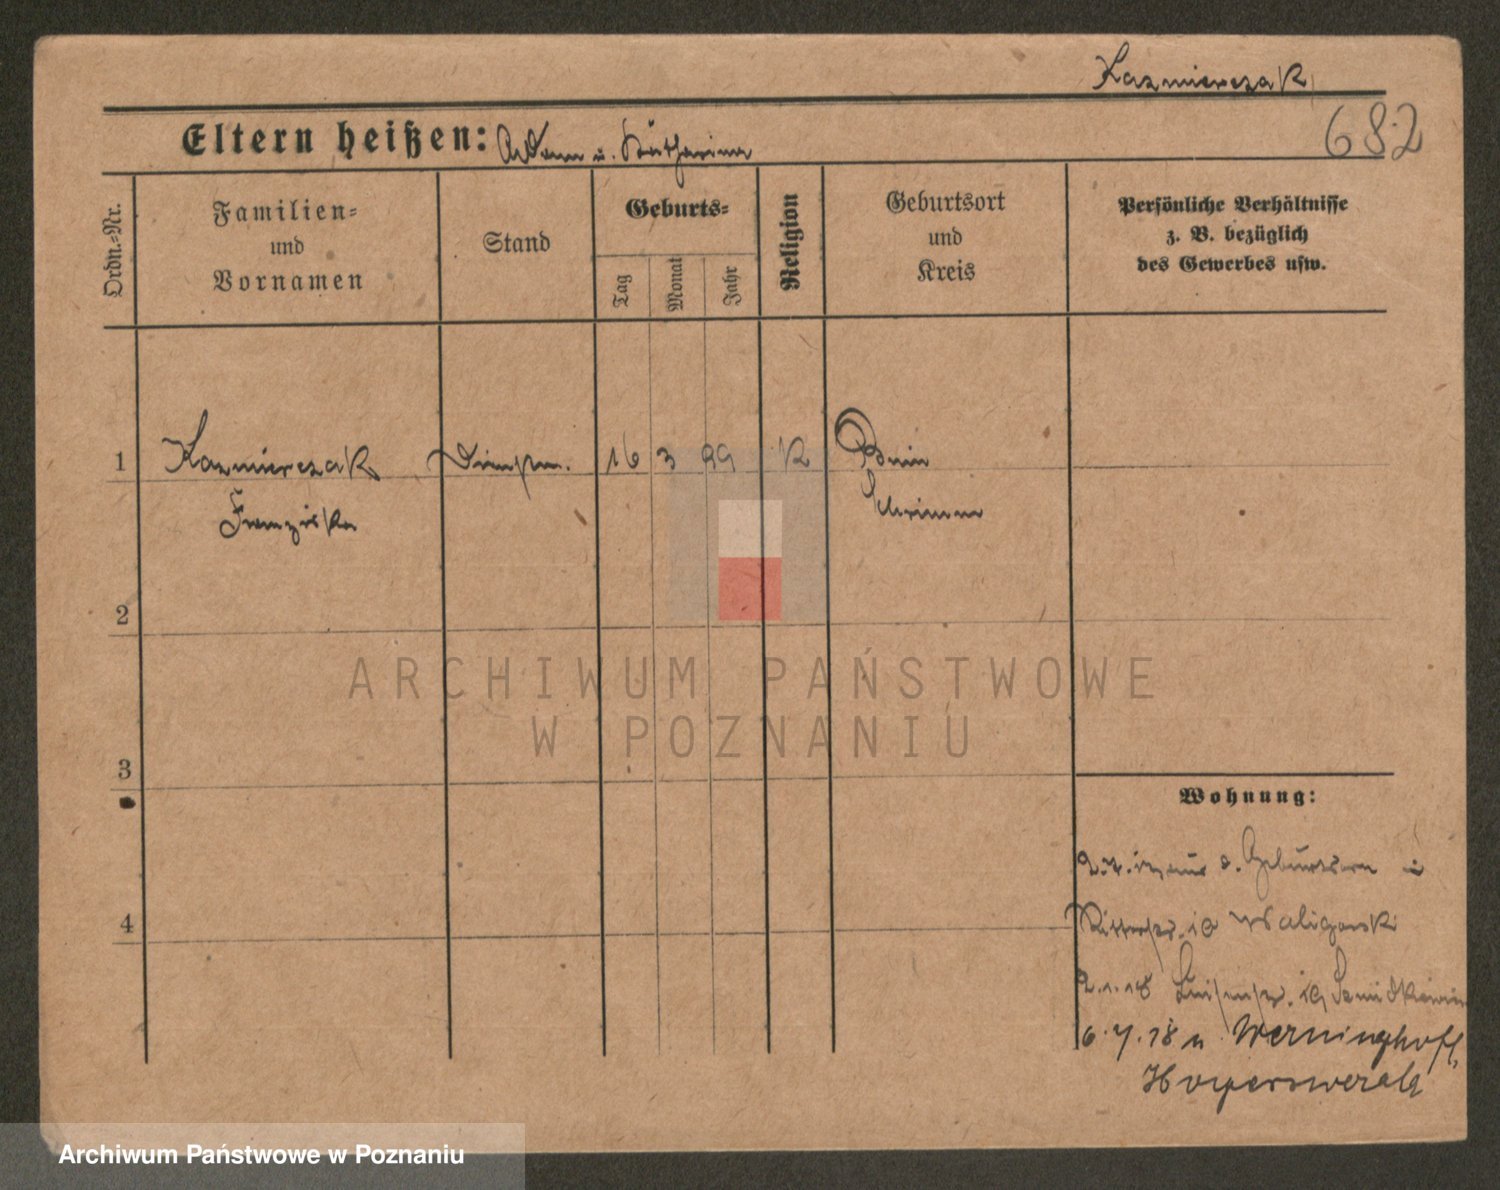 Kazmierczak
682
Eltern heißen: Adam u. Katharina
Ordn.-Nr.
Familien-
und
Vornamen
Stand
Geburts-
Tag
Monat
Jahr
Religion
Geburtsort
und
Kreis
Persönliche Verhältnisse
z. B. bezüglich
des Gewerbes usw.
1 Kazmierczak 16 3 99 K Bnin
Franziska Schrimm
2
3
4
Wohnung:
Geburtsort
Ritterstr. 10 Waligorski
2.1.18 Luisenstr. 19
6.7.18 n Werninghoff,
Hoyerswerda
ARCHIWUM PAŃSTWOWE
W POZNANIU
Archiwum Państwowe w Poznaniu